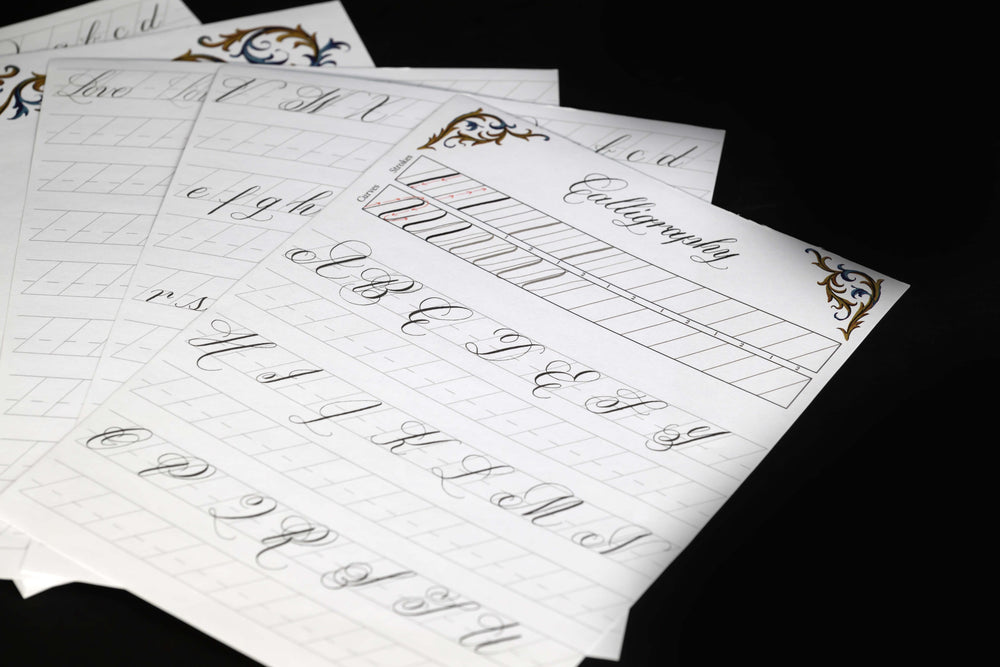 Calligraphy
Strokes
Curves
A B C D E F G
H I J K L M N
O P Q R S T U
V W X
e f g h
r s
Love
b c d
a b c d